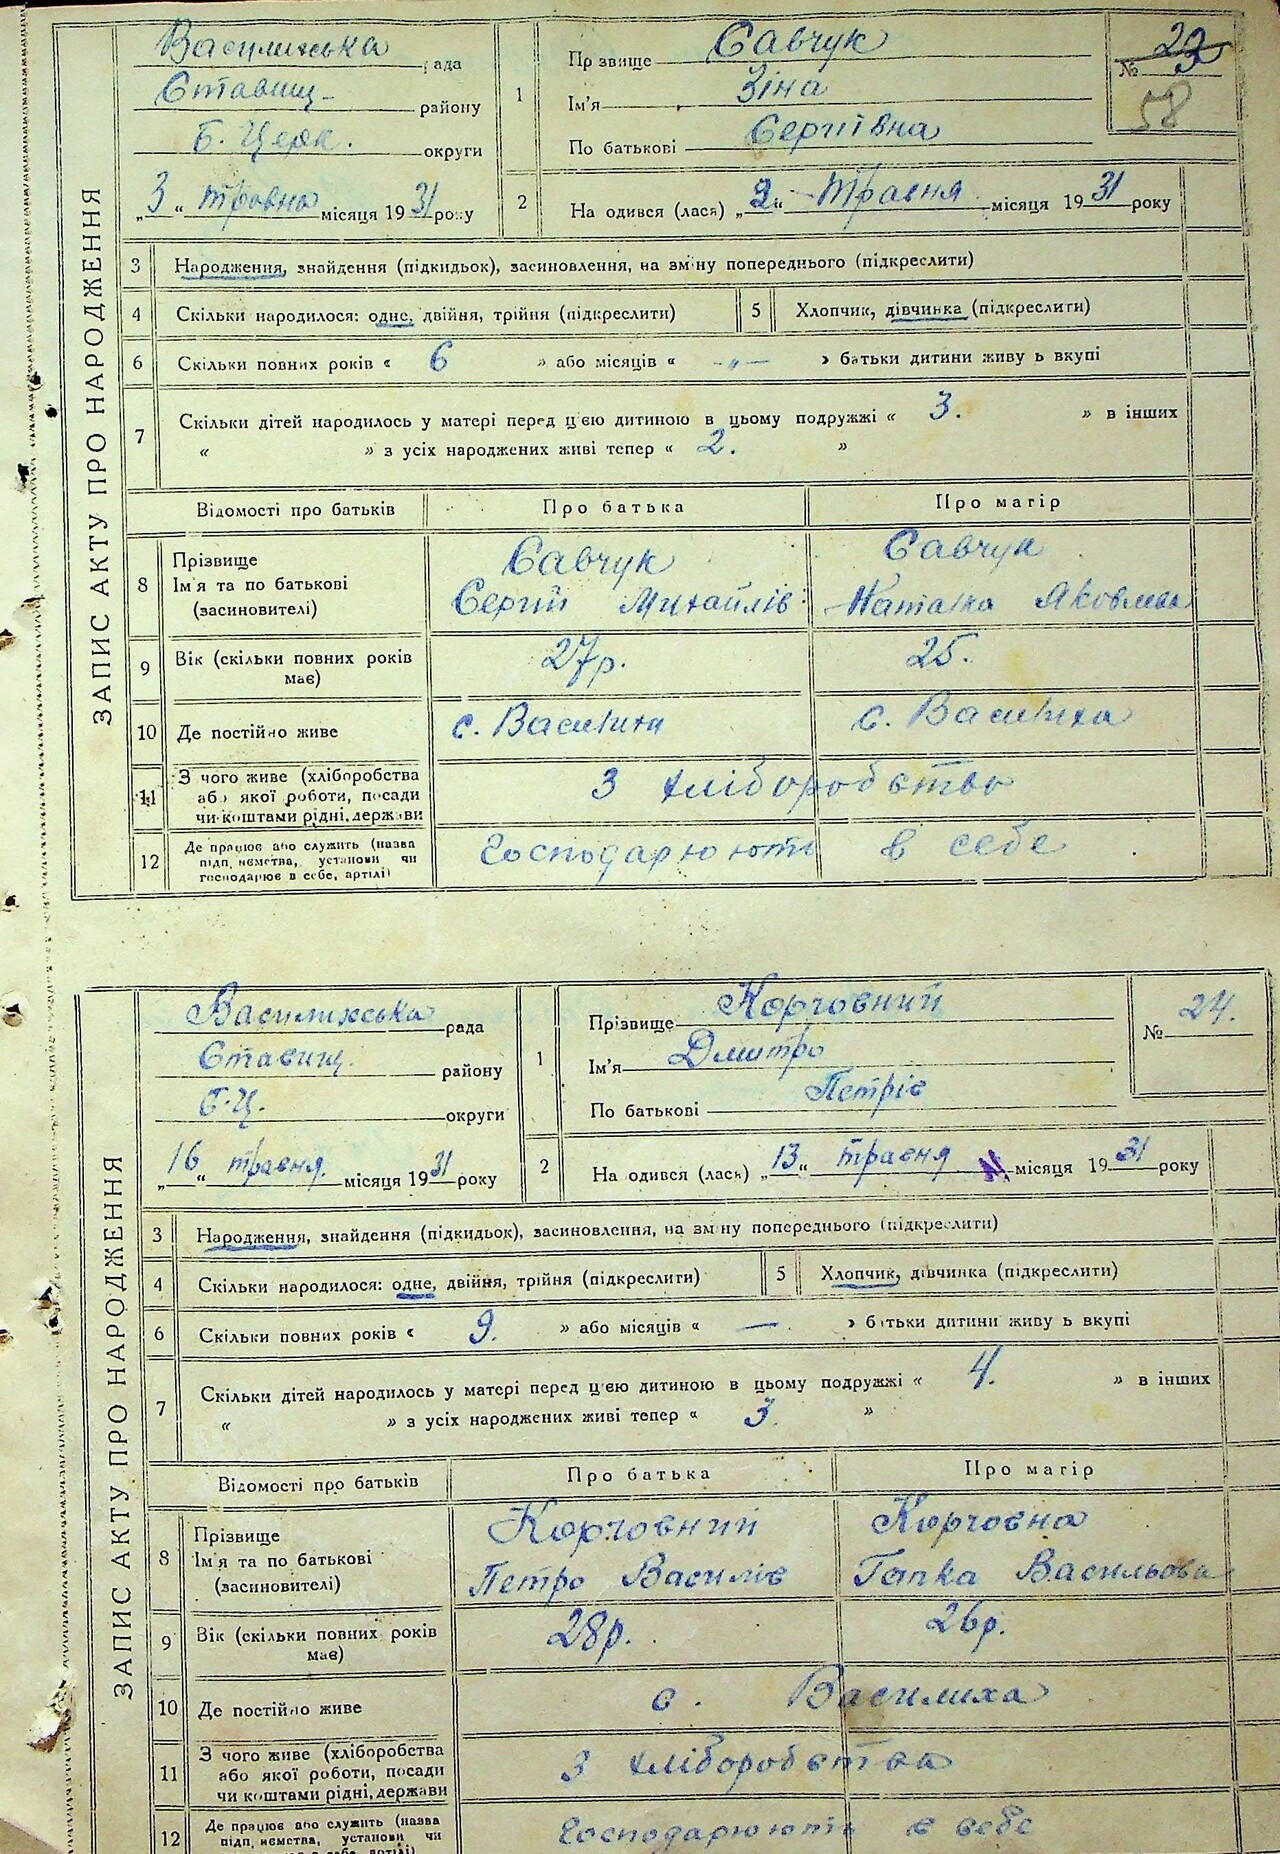 ЗАПИС АКТУ ПРО НАРОДЖЕННЯ
Василихська рада
Ставищ- району
Б. Церк. округи
„3“ травня місяця 1931 року
1 Прізвище Савчук
Ім'я Зіна
По батькові Сергіївна
№ 23
58
2 На одився (лася) „2“ травня місяця 1931 року
3 Народження, знайдення (підкидьок), засиновлення, на зміну попереднього (підкреслити)
4 Скільки народилося: одне, двійня, трійня (підкреслити) 5 Хлопчик, дівчинка (підкреслити)
6 Скільки повних років « 6 » або місяців « -„- » батьки дитини живуть вкупі
7 Скільки дітей народилось у матері перед цією дитиною в цьому подружжі « 3. » в інших
« » з усіх народжених живі тепер « 2. »
Відомості про батьків Про батька Про матір
8 Прізвище Савчук Савчук
Ім'я та по батькові Сергій Михайлів Наталка Яковлева
(засиновителі)
9 Вік (скільки повних років має) 27 р. 25.
10 Де постійно живе с. Василиха с. Василиха
11 З чого живе (хліборобства З хліборобство
або якої роботи, посади
чи коштами рідні, держави
12 Де працює або служить (назва Господарюють в себе
підп иємства, установи чи
господарює в себе, артілі)
ЗАПИС АКТУ ПРО НАРОДЖЕННЯ
Василихська рада
Ставищ. району
Б.Ц. округи
„16“ травня місяця 1931 року
1 Прізвище Корчовний
Ім'я Дмитро
По батькові Петрів
№ 24.
2 На одився (лася) „13“ травня місяця 1931 року
3 Народження, знайдення (підкидьок), засиновлення, на зміну попереднього (підкреслити)
4 Скільки народилося: одне, двійня, трійня (підкреслити) 5 Хлопчик, дівчинка (підкреслити)
6 Скільки повних років « 9. » або місяців « —. » батьки дитини живуть вкупі
7 Скільки дітей народилось у матері перед цією дитиною в цьому подружжі « 4. » в інших
« » з усіх народжених живі тепер « 3. »
Відомості про батьків Про батька Про матір
8 Прізвище Корчовний Корчовна
Ім'я та по батькові Петро Василів Гапка Васильова
(засиновителі)
9 Вік (скільки повних років має) 28р. 26р.
10 Де постійно живе с. Василиха
11 З чого живе (хліборобства З хліборобства
або якої роботи, посади
чи коштами рідні, держави
12 Де працює або служить (назва Господарюють в себе
підп иємства, установи чи